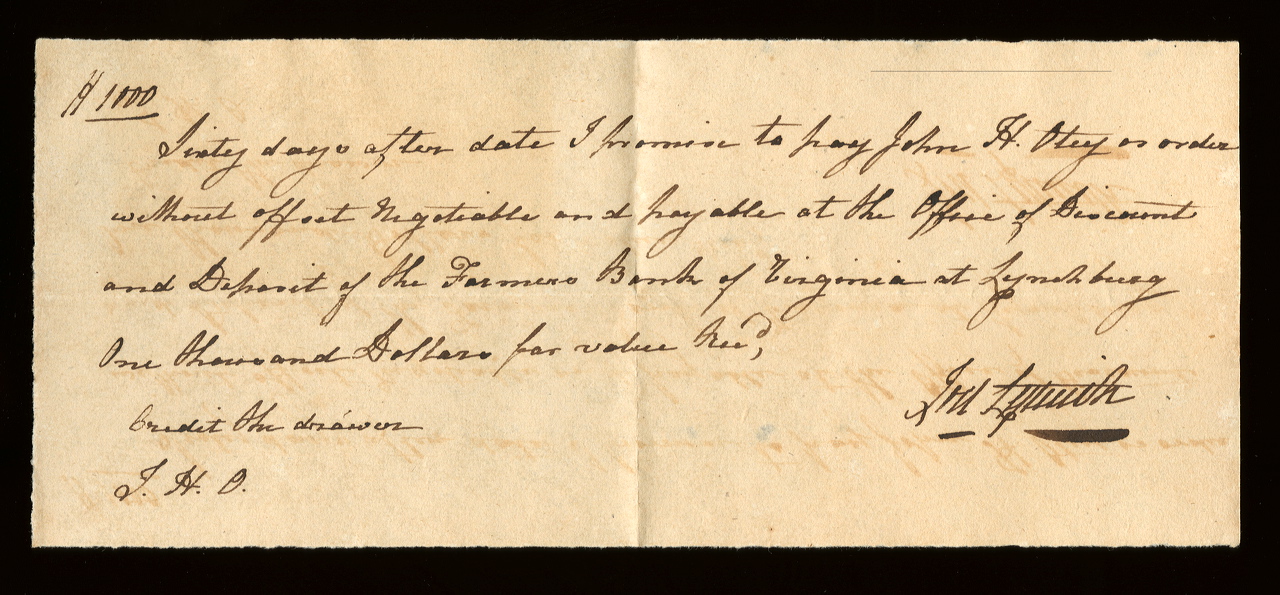 $ 1000
Sixty days after date I promise to pay John H. Otey or order
without offset Negotiable and payable at the Office of Discount
and Deposit of the Farmers Bank of Virginia at Lynchburg
One thousand Dollars for value Recd,
Credit the drawer
J. H. O.